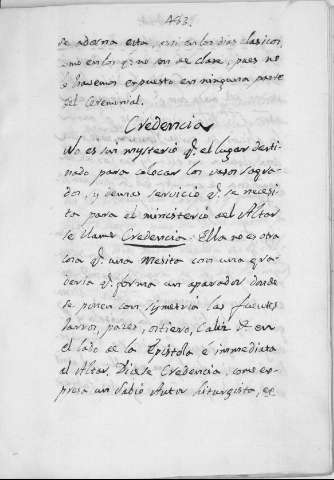 433.
se adorna esta, asi en los dias clasicos,
como en los q.e no son de clase, pues no
lo havemos expuesto en ninguna parte
del Ceremonial.
Credencia
No es sin mysterio q.e el lugar desti-
nado para colocar los vasos sagra-
dos, y demas servicio q.e se necesi-
ta para el ministerio del Altar
se llame Credencia: Ella no es otra
cosa q.e una Mesita con una gra-
deria q.e forma un aparador donde
se ponen con symetria las fuentes
Jarros, pazes, ostiero, Caliz & en
el lado de la Epistola e immediata
al Altar. Dicese Credencia, como ex-
presa un Sabio Autor liturgista, ex